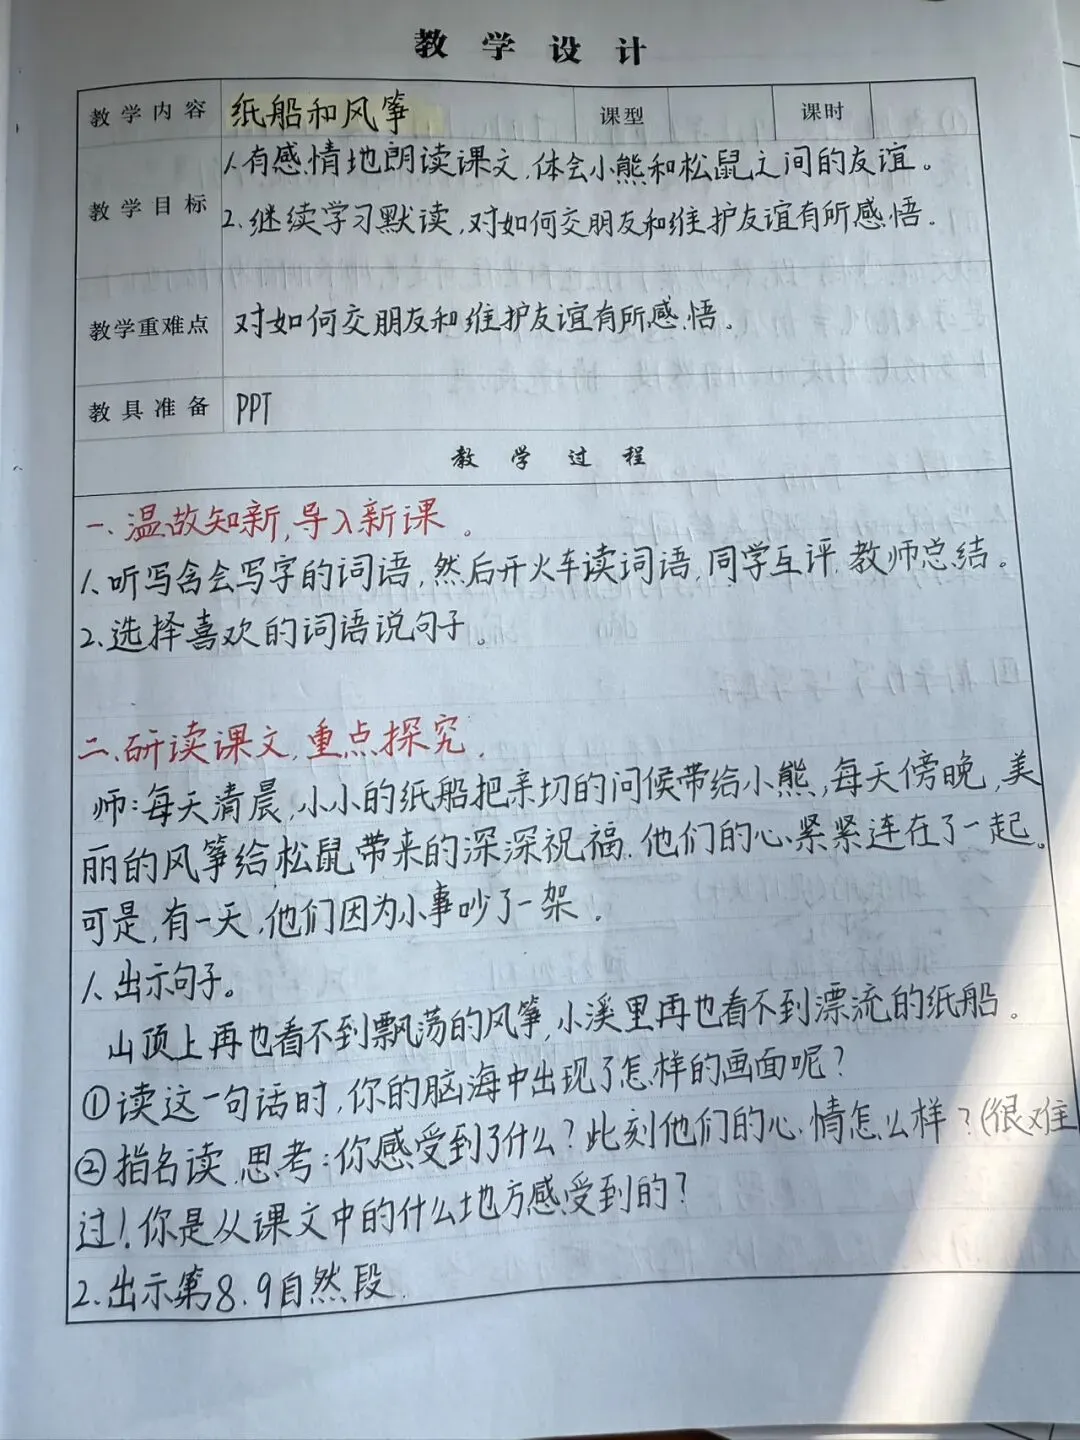 教学设计
教学内容 纸船和风筝 课型 课时
教学目标 1.有感情地朗读课文,体会小熊和松鼠之间的友谊。
2.继续学习默读,对如何交朋友和维护友谊有所感悟.
教学重难点 对如何交朋友和维护友谊有所感悟。
教具准备 PPT
教学过程
一、温故知新,导入新课。
1.听写含会写字的词语,然后开火车读词语,同学互评.教师总结。
2.选择喜欢的词语说句子。
二.研读课文,重点探究.
师:每天清晨,小小的纸船把亲切的问候带给小熊,每天傍晚,美
丽的风筝给松鼠带来的深深祝福.他们的心紧紧连在了一起。
可是,有一天,他们因为小事吵了一架.
1.出示句子。
山顶上再也看不到飘荡的风筝,小溪里再也看不到漂流的纸船。
①读这一句话时,你的脑海中出现了怎样的画面呢?
②指名读.思考:你感受到了什么?此刻他们的心情怎么样?(很难
过!.你是从课文中的什么地方感受到的?
2.出示第8.9自然段.